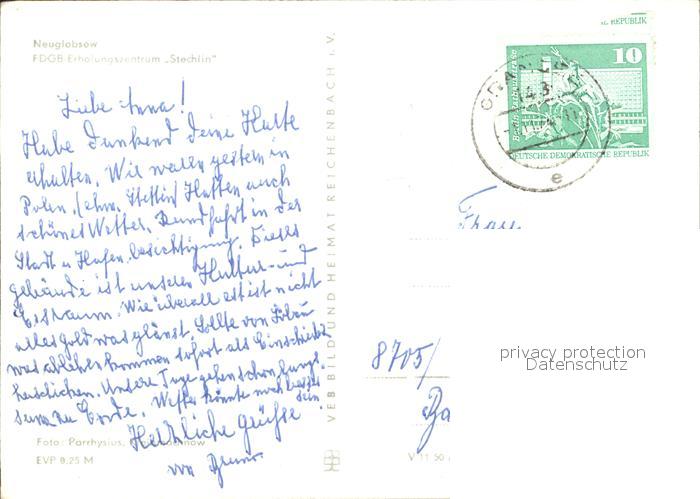 Neuglobsow
FDGB-Erholungszentrum „Stechlin"
Liebe Anna!
Habe dankend deine Karte
erhalten. Wir waren gestern in
Polen, (ehm. Stettin) Hatten auch
schönes Wetter. Rundfahrt in der
Stadt u Hafen besichtigung. Dieses
gebäude ist unseren Kultur- und
Essraum. Wie überall es ist nicht
alles Gold was glänzt. Sollte von
was kommen sofort als Einschreiben
schicken. Unsere Tage gehen schon
zu Ende. Wetter könnte noch besser
sein
Herzliche Grüsse
von Bruno
Foto: Parrhysius,
EVP 0.25 M
VEB BILD UND HEIMAT REICHENBACH i. V.
V 11 50
REPUBLIK
10
DEUTSCHE DEMOKRATISCHE REPUBLIK
e
Frau
8705/
privacy protection
Datenschutz